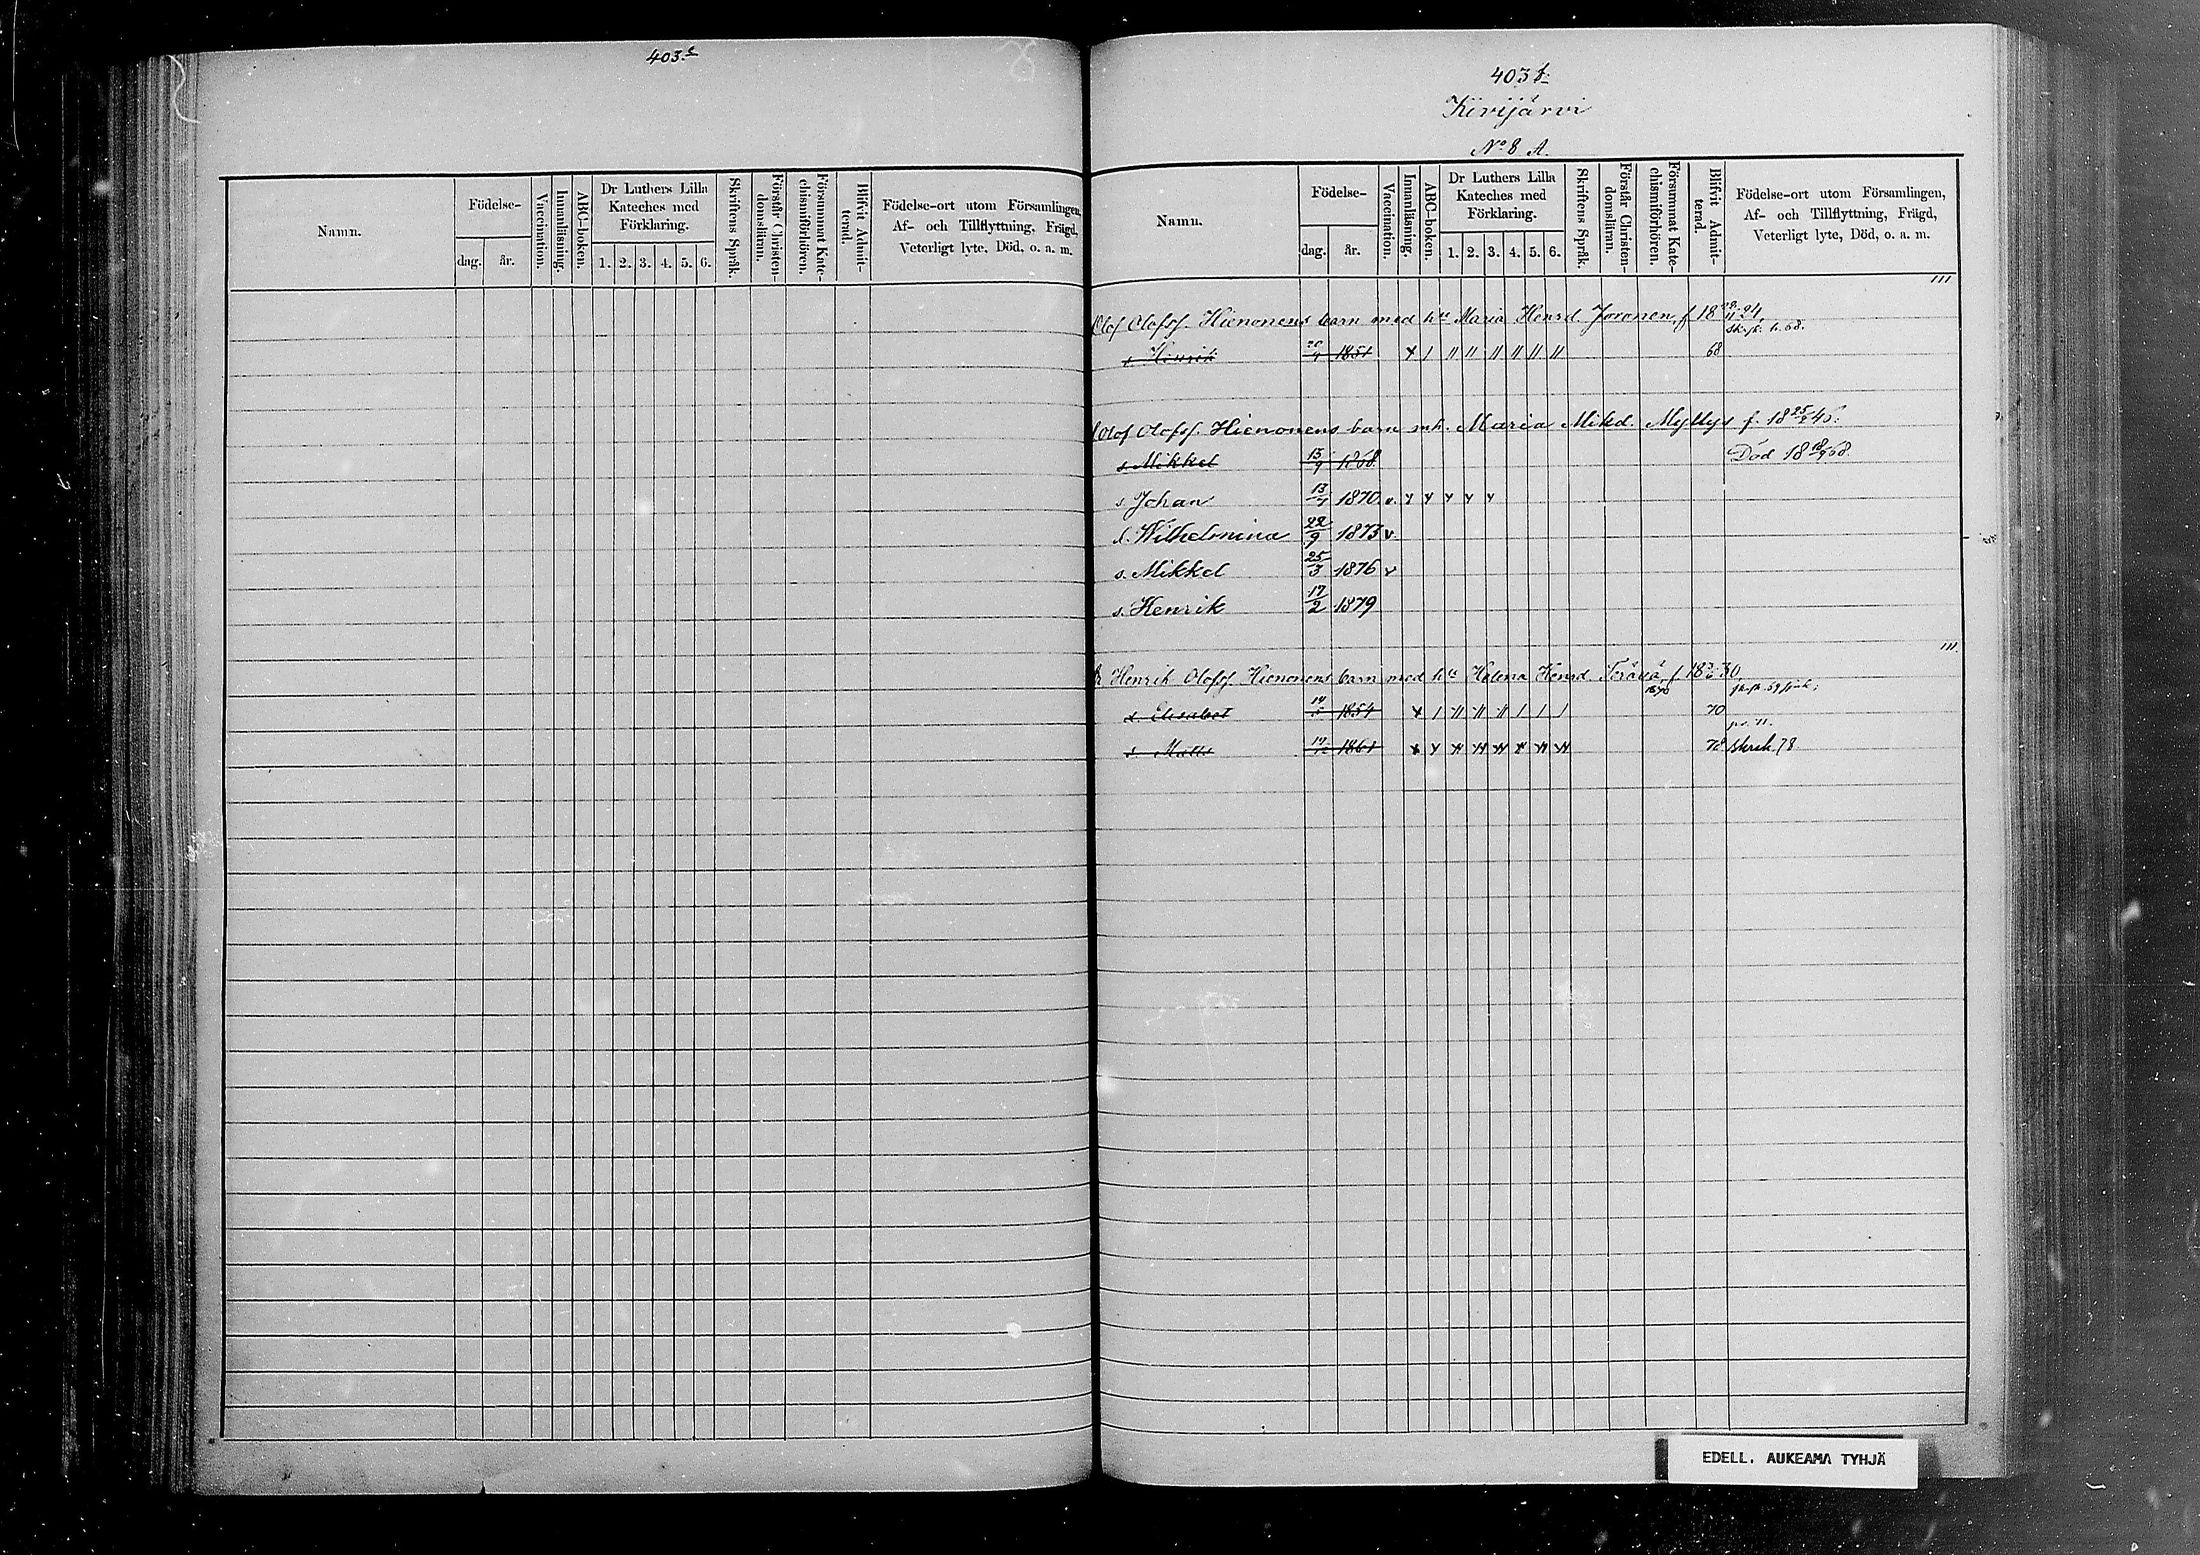 403 e
Namn.
Födelse-
dag.
år.
Vaccination.
Innanläsning.
ABC-boken.
Dr Luthers Lilla
Kateches med
Förklaring.
1. 2. 3. 4. 5. 6.
Skriftens Språk.
Förstår Christen-
domsläran.
Försummat Kate-
chismiförhören.
Blifvit Admit-
terad.
Födelse-ort utom Församlingen,
Af- och Tillflyttning, Frägd,
Veterligt lyte, Död, o. a. m.
403 f:
Kivijärvi
No 8 A.
Namn.
Födelse-
dag.
år.
Vaccination.
Innanläsning.
ABC-boken.
Dr Luthers Lilla
Kateches med
Förklaring.
1. 2. 3. 4. 5. 6.
Skriftens Språk.
Förstår Christen-
domsläran.
Försummat Kate-
chismiförhören.
Blifvit Admit-
terad.
Födelse-ort utom Församlingen,
Af- och Tillflyttning, Frägd,
Veterligt lyte, Död, o. a. m.
III
Olof Olofsf. Hienonens barn med hu Maria Henrd Joronen, f 18 24,
s. Hinrik 1851 x / 11 11 11 11 11 11 68
Olof Olofsf. Hienonens barn mh. Maria Mikd. Myllys f. 18 25/2 45.
s. Mikkel 15/9 1868. Död 18 18/9 68.
s. Johan 13/4 1870. v. y y y y y
d. Wilhelmina 22/9 1873 v
s. Mikkel 25/3 1876 v
s. Henrik 17/2 1879
III.
Henrik Olofsf. Hienonens barn med hu Helena Henrd Terävä, f 18 30,
d. Elisabet 1854 x / 11 11 11 / / / 70
s. Matts 1861 78 skrsk. 78
EDELL. AUKEAMA TYHJÄ